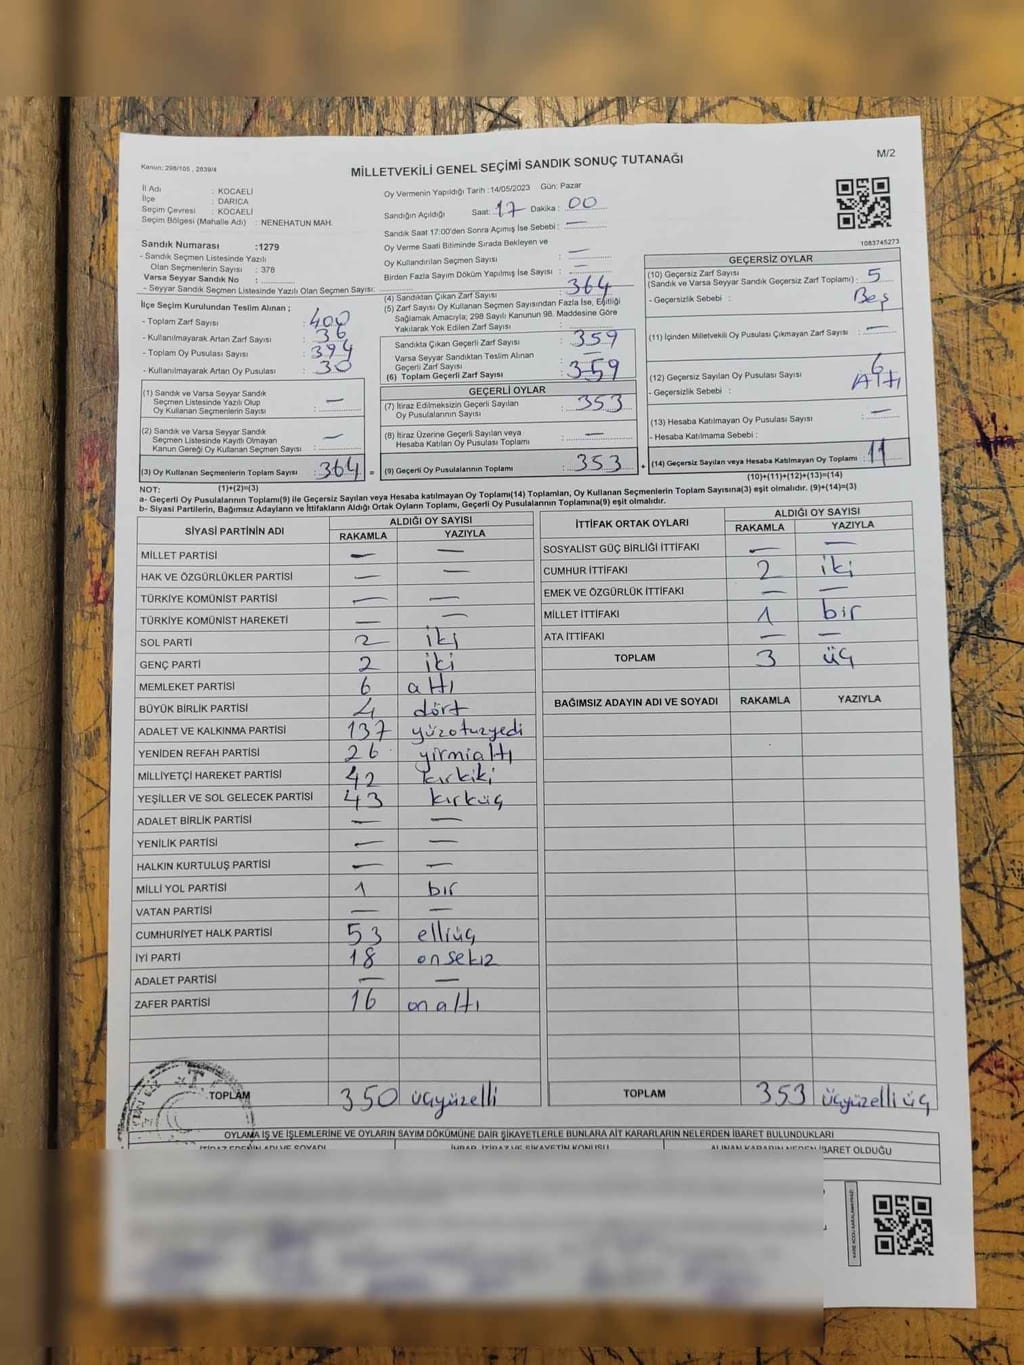 Kanun: 298/105 , 2839/4
MİLLETVEKİLİ GENEL SEÇİMİ SANDIK SONUÇ TUTANAĞI
M/2
İl Adı : KOCAELİ
İlçe : DARICA
Seçim Çevresi : KOCAELİ
Seçim Bölgesi (Mahalle Adı) : NENEHATUN MAH.
Sandık Numarası :1279
- Sandık Seçmen Listesinde Yazılı
Olan Seçmenlerin Sayısı : 378
Varsa Seyyar Sandık No :
- Seyyar Sandık Seçmen Listesinde Yazılı Olan Seçmen Sayısı:
Oy Vermenin Yapıldığı Tarih :14/05/2023 Gün: Pazar
Sandığın Açıldığı Saat: 17 Dakika : 00
Sandık Saat 17:00'den Sonra Açılmış İse Sebebi : —
Oy Verme Saati Bitiminde Sırada Bekleyen ve
Oy Kullandırılan Seçmen Sayısı : —
Birden Fazla Sayım Döküm Yapılmış İse Sayısı : —
1083745273
İlçe Seçim Kurulundan Teslim Alınan ;
- Toplam Zarf Sayısı : 400
- Kullanılmayarak Artan Zarf Sayısı : 36
- Toplam Oy Pusulası Sayısı : 394
- Kullanılmayarak Artan Oy Pusulası : 30
(1) Sandık ve Varsa Seyyar Sandık
Seçmen Listesinde Yazılı Olup
Oy Kullanan Seçmenlerin Sayısı : —
(2) Sandık ve Varsa Seyyar Sandık
Seçmen Listesinde Kaydı Olmayan
Kanun Gereği Oy Kullanan Seçmen Sayısı : —
(3) Oy Kullanan Seçmenlerin Toplam Sayısı : 364 =
(1)+(2)=(3)
(4) Sandıktan Çıkan Zarf Sayısı : 364
(5) Zarf Sayısı Oy Kullanan Seçmen Sayısından Fazla İse, Eşitliği
Sağlamak Amacıyla; 298 Sayılı Kanunun 98. Maddesine Göre
Yakılarak Yok Edilen Zarf Sayısı :
Sandıkta Çıkan Geçerli Zarf Sayısı : 359
Varsa Seyyar Sandıktan Teslim Alınan
Geçerli Zarf Sayısı : —
(6) Toplam Geçerli Zarf Sayısı : 359
GEÇERLİ OYLAR
(7) İtiraz Edilmeksizin Geçerli Sayılan
Oy Pusulalarının Sayısı : 353
(8) İtiraz Üzerine Geçerli Sayılan veya
Hesaba Katılan Oy Pusulası Toplamı : —
(9) Geçerli Oy Pusulalarının Toplamı : 353 +
GEÇERSİZ OYLAR
(10) Geçersiz Zarf Sayısı
(Sandık ve Varsa Seyyar Sandık Geçersiz Zarf Toplamı) : 5
- Geçersizlik Sebebi : Beş
(11) İçinden Milletvekili Oy Pusulası Çıkmayan Zarf Sayısı : —
(12) Geçersiz Sayılan Oy Pusulası Sayısı : 6
- Geçersizlik Sebebi : Altı
(13) Hesaba Katılmayan Oy Pusulası Sayısı : —
- Hesaba Katılmama Sebebi :
(14) Geçersiz Sayılan veya Hesaba Katılmayan Oy Toplamı : 11
(10)+(11)+(12)+(13)=(14)
NOT:
a- Geçerli Oy Pusulalarının Toplamı(9) ile Geçersiz Sayılan veya Hesaba katılmayan Oy Toplamı(14) Toplamları, Oy Kullanan Seçmenlerin Toplam Sayısına(3) eşit olmalıdır. (9)+(14)=(3)
b- Siyasi Partilerin, Bağımsız Adayların ve İttifakların Aldığı Ortak Oyların Toplamı, Geçerli Oy Pusulalarının Toplamına(9) eşit olmalıdır.
SİYASİ PARTİNİN ADI ALDIĞI OY SAYISI
RAKAMLA YAZIYLA
MİLLET PARTİSİ — —
HAK VE ÖZGÜRLÜKLER PARTİSİ — —
TÜRKİYE KOMÜNİST PARTİSİ — —
TÜRKİYE KOMÜNİST HAREKETİ — —
SOL PARTİ 2 iki
GENÇ PARTİ 2 iki
MEMLEKET PARTİSİ 6 altı
BÜYÜK BİRLİK PARTİSİ 4 dört
ADALET VE KALKINMA PARTİSİ 137 yüzotuzyedi
YENİDEN REFAH PARTİSİ 26 yirmialtı
MİLLİYETÇİ HAREKET PARTİSİ 42 kırkiki
YEŞİLLER VE SOL GELECEK PARTİSİ 43 kırküç
ADALET BİRLİK PARTİSİ — —
YENİLİK PARTİSİ — —
HALKIN KURTULUŞ PARTİSİ — —
MİLLİ YOL PARTİSİ 1 bir
VATAN PARTİSİ — —
CUMHURİYET HALK PARTİSİ 53 elliüç
İYİ PARTİ 18 onsekiz
ADALET PARTİSİ — —
ZAFER PARTİSİ 16 onaltı
TOPLAM 350 üçyüzelli
İTTİFAK ORTAK OYLARI ALDIĞI OY SAYISI
RAKAMLA YAZIYLA
SOSYALİST GÜÇ BİRLİĞİ İTTİFAKI — —
CUMHUR İTTİFAKI 2 iki
EMEK VE ÖZGÜRLÜK İTTİFAKI — —
MİLLET İTTİFAKI 1 bir
ATA İTTİFAKI — —
TOPLAM 3 üç
BAĞIMSIZ ADAYIN ADI VE SOYADI RAKAMLA YAZIYLA
TOPLAM 353 üçyüzelliüç
OYLAMA İŞ VE İŞLEMLERİNE VE OYLARIN SAYIM DÖKÜMÜNE DAİR ŞİKAYETLERLE BUNLARA AİT KARARLARIN NELERDEN İBARET BULUNDUKLARI
İTİRAZ EDENİN ADI VE SOYADI İHBAR, İTİRAZ VE ŞİKAYETİN KONUSU ALINAN KARARIN NEDEN İBARET OLDUĞU